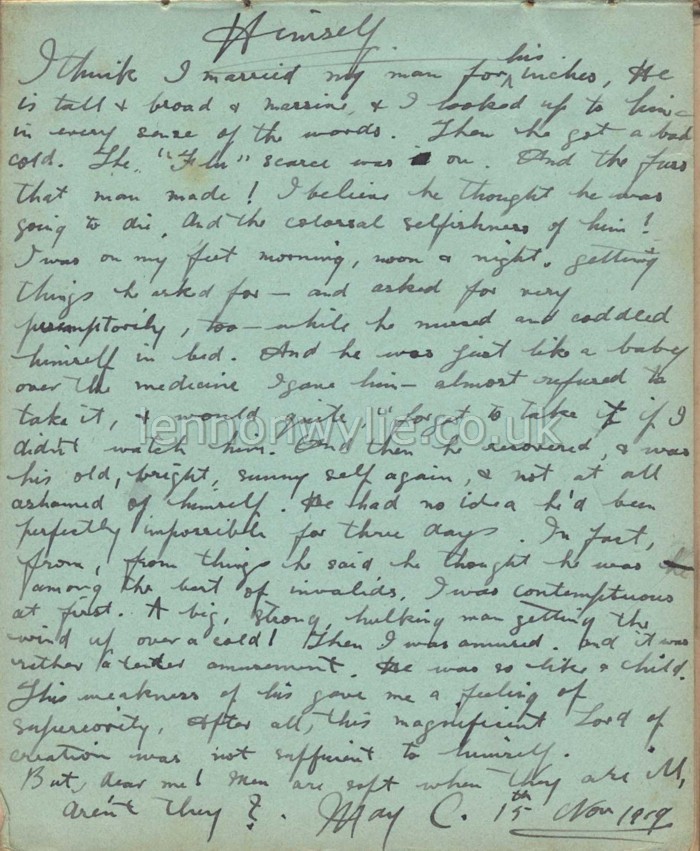 Himself
I think I married my man for his inches, He
is tall & broad & massive, & I looked up to him –
in every sense of the words. Then he got a bad
cold. The "Flu" scare was on. And the fuss
that man made! I believe he thought he was
going to die, And the colossal selfishness of him!
I was on my feet morning, noon & night, getting
things he asked for – and asked for very
peremptorily, too – while he nursed and coddled
himself in bed. And he was just like a baby
over the medicine I gave him – almost refused to
take it, & would quite "forget to take it if I
didn't watch him. And then he recovered, & was
his old, bright, sunny self again, & not at all
ashamed of himself. He had no idea he'd been
perfectly impossible for three days. In fact,
from, from things he said he thought he was
among the best of invalids, I was contemptuous
at first. A big, strong, hulking man getting the
wind up over a cold! Then I was amused. and it was
rather a tender amusement. He was so like a child.
This weakness of his gave me a feeling of
superiority, After all, this magnificent Lord of
creation was not sufficient to himself.
But, dear me! Men are soft when they are ill,
aren't they?. May C. 15th Nov 1919
lennonwylie.co.uk